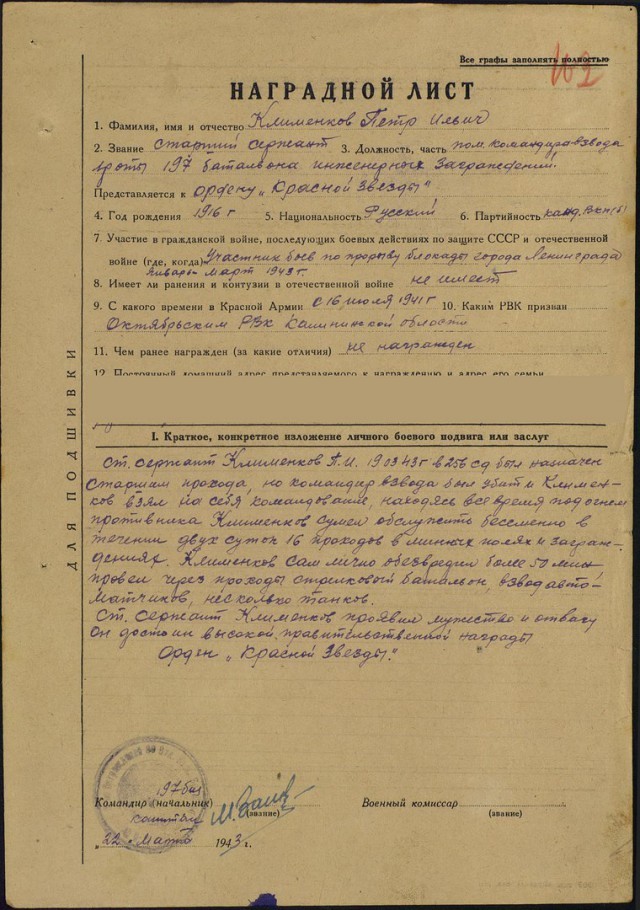 Все графы заполнять полностью
НАГРАДНОЙ ЛИСТ
1. Фамилия, имя и отчество Клименков Петр Ильич
2. Звание старший сержант 3. Должность, часть пом. командира взвода
роты 197 батальона инженерных заграждений.
Представляется к ордену „Красной Звезды"
4. Год рождения 1916 г 5. Национальность Русский 6. Партийность канд. ВКП(б)
7. Участие в гражданской войне, последующих боевых действиях по защите СССР и отечественной
войне (где, когда) Участник боев по прорыву блокады города Ленинграда
январь март 1943 г.
8. Имеет ли ранения и контузии в отечественной войне не имеет
9. С какого времени в Красной Армии с 16 июля 1941 г 10. Каким РВК призван
Октябрьским РВК Калининской области
11. Чем ранее награжден (за какие отличия) не награжден
12. Постоянный домашний адрес представляемого к награждению и адрес его семьи
ДЛЯ ПОДШИВКИ
I. Краткое, конкретное изложение личного боевого подвига или заслуг
Ст. сержант Клименков П.И. 19 03 43 г в 256 сд был назначен
старшим прохода, но командир взвода был убит и Климен-
ков взял на себя командование, находясь все время под огнем
противника Клименков сумел обслужить бессменно в
течении двух суток 16 проходов в минных полях и заграж-
дениях. Клименков сам лично обезвредил более 50 мин
провел через проходы стрелковый батальон, взвод авто-
матчиков, несколько танков.
Ст. сержант Клименков проявил мужество и отвагу
Он достоин высокой правительственной награды
Орден „Красной Звезды."
197 биз
Командир (начальник) Военный комиссар
капитан (звание) (звание)
„22" Марта 1943 г.